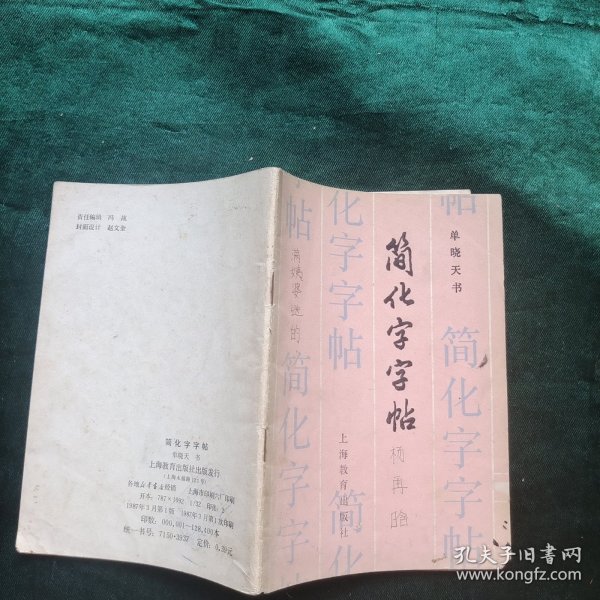 单晓天书
简化字字帖
上海教育出版社
杨再晗
简化字字帖
化字字帖
简化
帖
简化字字
责任编辑 冯战
封面设计 赵文奎
简化字字帖
单晓天 书
上海教育出版社出版发行
(上海永福路123号)
各地新华书店经销 上海市印刷六厂印刷
开本:787×1092 1/32 印张:2
1987年3月第1版 1987年3月第1次印刷
印数:000,001—128,400本
统一书号:7150·3937 定价:0.39元
孔夫子旧书网
www.kongfz.com